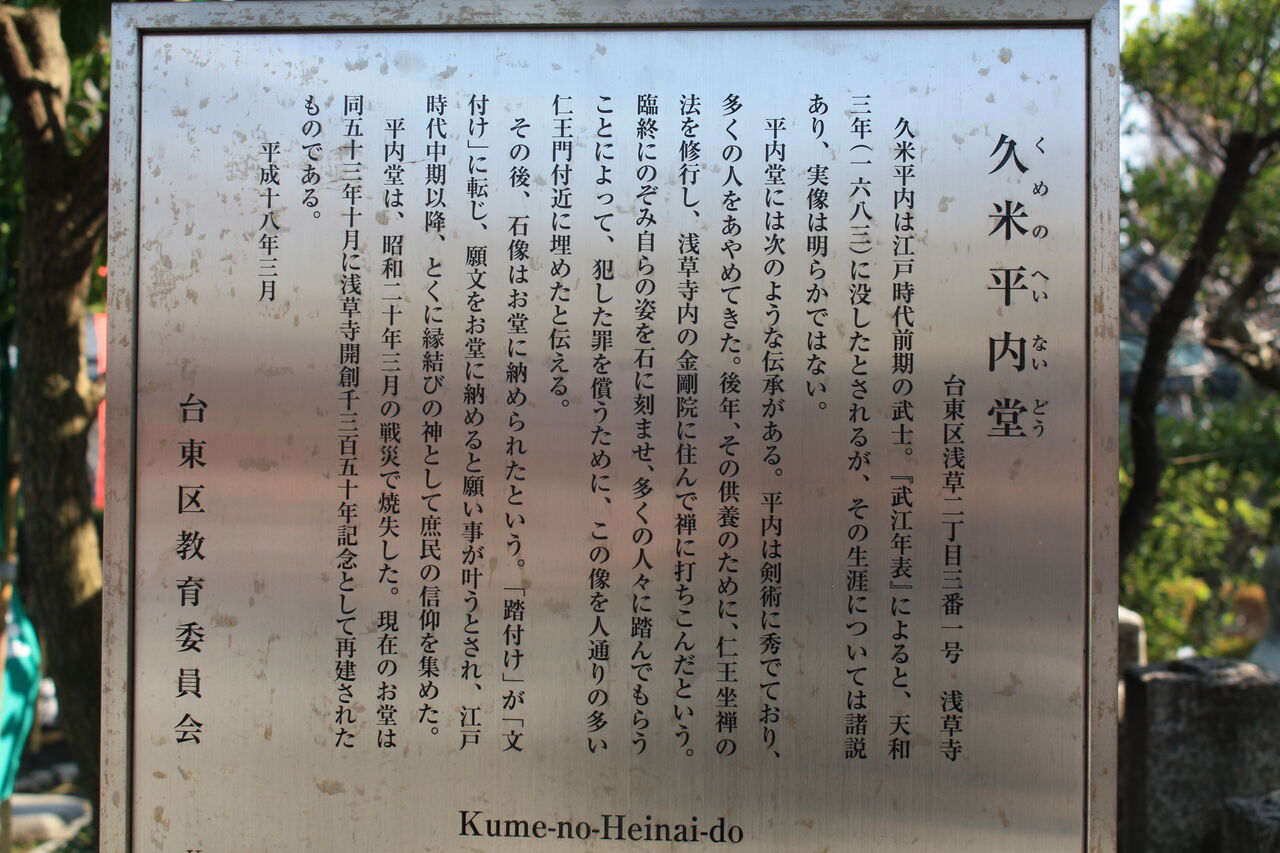 久米平内堂
くめのへいないどう
台東区浅草二丁目三番一号　浅草寺
久米平内は江戸時代前期の武士。『武江年表』によると、天和
三年（一六八三）に没したとされるが、その生涯については諸説
あり、実像は明らかではない。
平内堂には次のような伝承がある。平内は剣術に秀でており、
多くの人をあやめてきた。後年、その供養のために、仁王坐禅の
法を修行し、浅草寺内の金剛院に住んで禅に打ちこんだという。
臨終にのぞみ自らの姿を石に刻ませ、多くの人々に踏んでもらう
ことによって、犯した罪を償うために、この像を人通りの多い
仁王門付近に埋めたと伝える。
その後、石像はお堂に納められたという。「踏付け」が「文
付け」に転じ、願文をお堂に納めると願い事が叶うとされ、江戸
時代中期以降、とくに縁結びの神として庶民の信仰を集めた。
平内堂は、昭和二十年三月の戦災で焼失した。現在のお堂は
同五十三年十月に浅草寺開創千三百五十年記念として再建された
ものである。
平成十八年三月
台東区教育委員会
Kume-no-Heinai-do